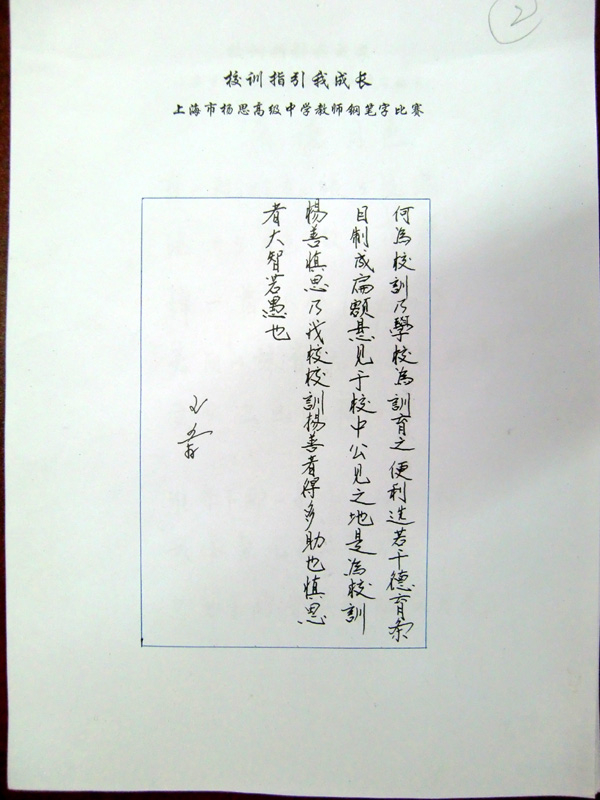 2
校训指引我成长
上海市杨思高级中学教师钢笔字比赛
何為校訓乃學校為訓育之便利选若干德育条
目制成扁額悬见于校中公见之地是為校訓
揚善慎思乃我校校訓揚善者得多助也慎思
者大智若愚也